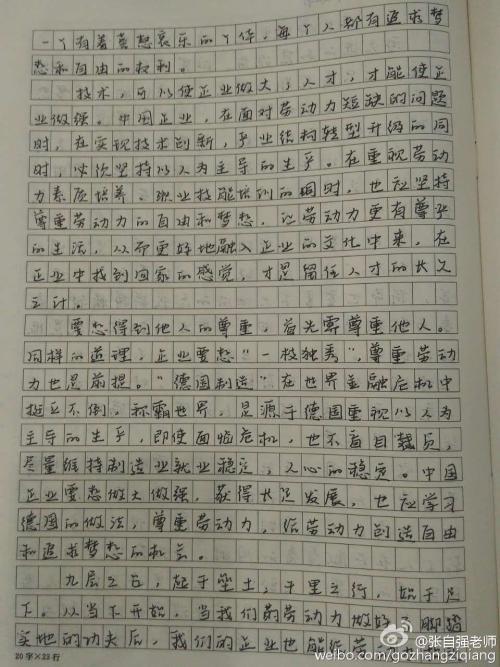 一个有着喜怒哀乐的个体，每个人都有追求梦
想和自由的权利。
技术，可以使企业做大；人才，才能使企
业做强。中国企业，在面对劳动力短缺的问题
时，在实现技术创新，产业结构转型升级的同
时，必须坚持以人为主导的生产。在重视劳动
力素质培养、职业技能培训的同时，也应坚持
尊重劳动力的自由和梦想，让劳动力更有尊严
的生活，从而更好地融入企业的文化中来，在
企业中找到回家的感觉，才是留住人才的长久
之计。
要想得到他人的尊重，首先需尊重他人。
同样的道理，企业要想“一枝独秀”，尊重劳动
力也是前提。“德国制造”在世界金融危机中
挺立不倒，称霸世界，是源于德国重视以人为
主导的生产，即使面临危机，也不盲目裁员，
尽量维持制造业就业稳定，人心的稳定。中国
企业要想做大做强，获得长足发展，也应学习
德国的做法，尊重劳动力，给劳动力创造自由
和追求梦想的机会。
九层之台，起于垒土，千里之行，始于足
下。从当下开始，当我们的劳动力做好 脚踏
实地的功夫后，我们的企业也能
20字×23行
@张自强老师
weibo.com/gozhangziqiang